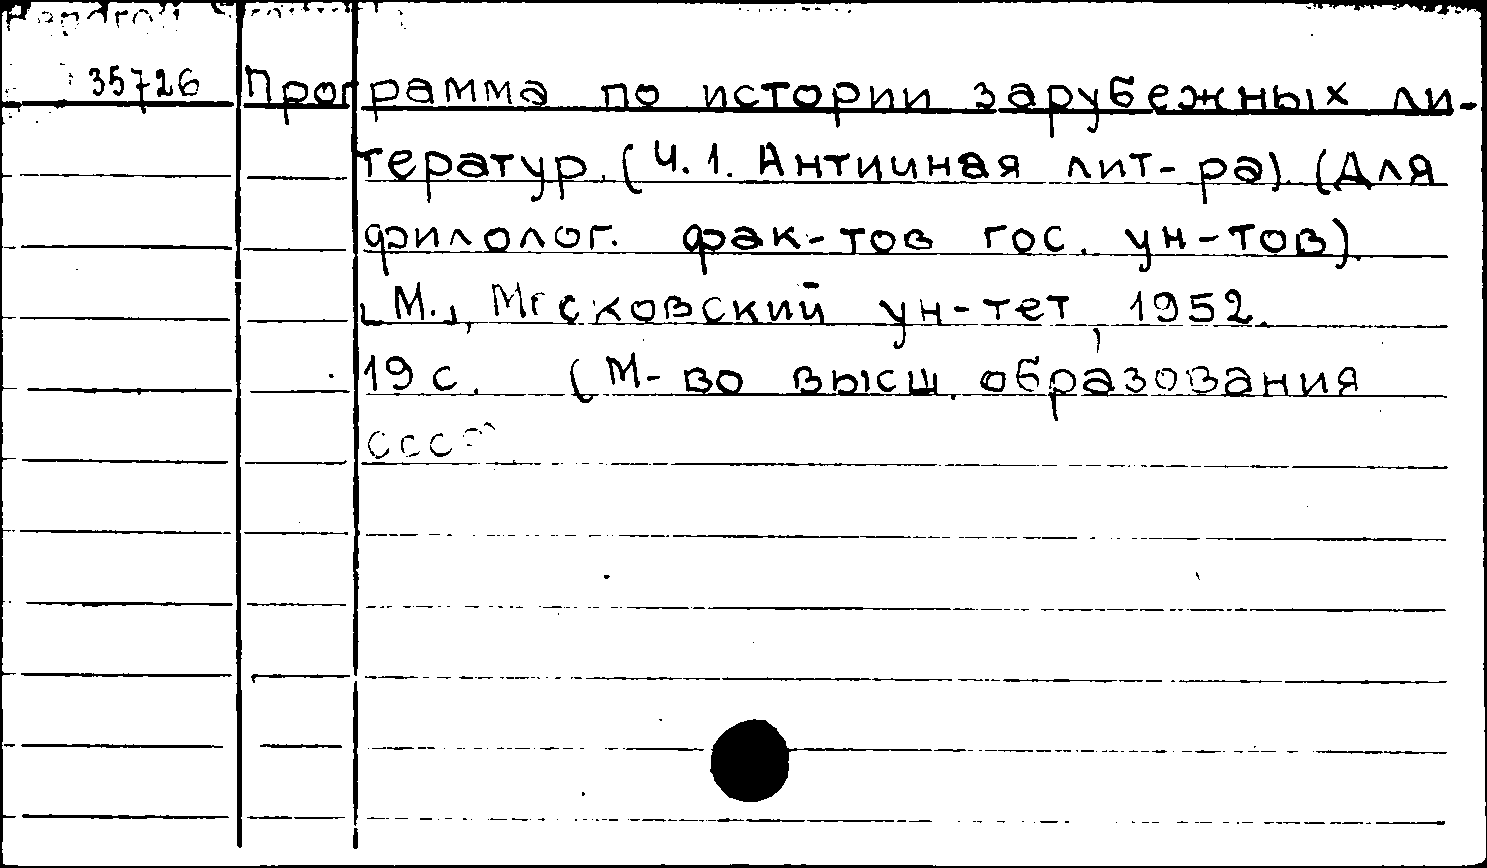 35726 Программа по истории зарубежных ли-
тератур. (Ч. 1. Античная лит-ра). (Для
филолог. фак-тов гос. ун-тов).
[М.], Московский ун-тет, 1952.
19 с. (М-во высш. образования
СССР)